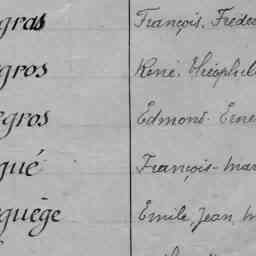 gras François, Fréde
gros René, Théophil
egros Edmond Erne
qué François-mar
guège Emile, Jean, M